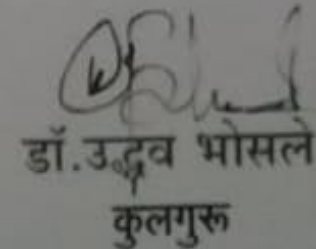 डॉ.उद्धव भोसले
कुलगुरू